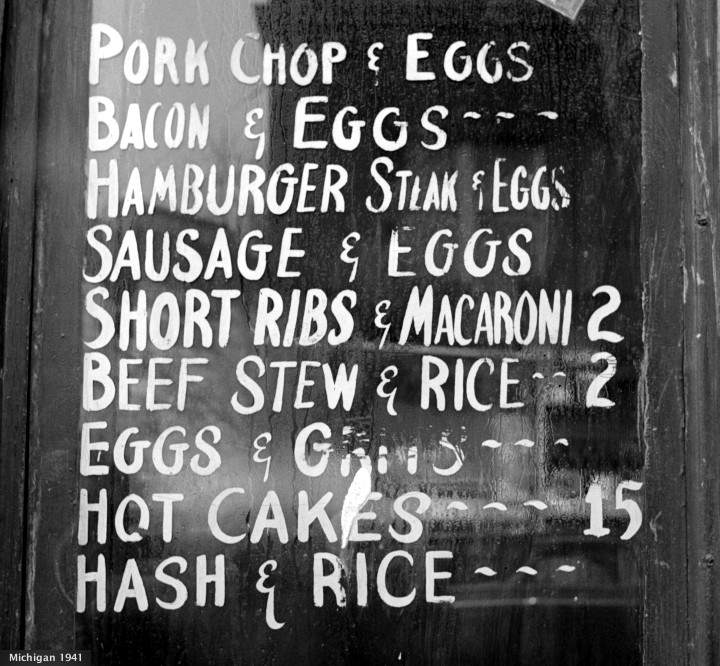 PORK CHOP & EGGS
BACON & EGGS - - -
HAMBURGER STEAK & EGGS
SAUSAGE & EGGS
SHORT RIBS & MACARONI 2
BEEF STEW & RICE - - 2
EGGS & GRITS - - -
HOT CAKES - - - - 15
HASH & RICE - - - -
Michigan 1941